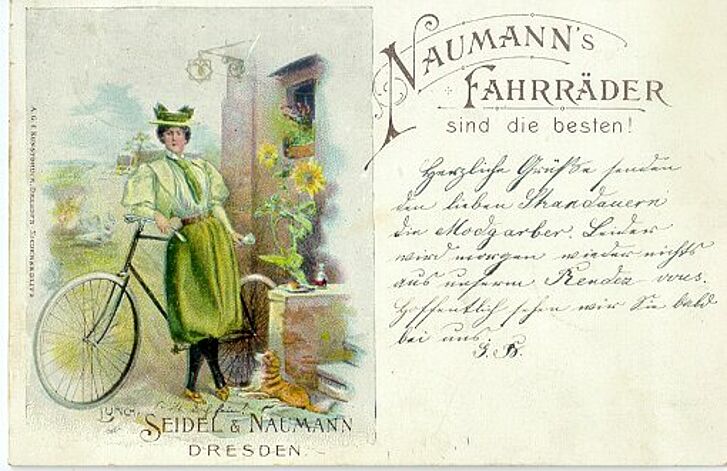 NAUMANN'S
FAHRRÄDER
sind die besten!
Herzliche Grüße senden
den lieben Schandauern
die Modgarber. Leider
wird morgen wieder nichts
aus unserm Rendez-vous.
Hoffentlich sehen wir Sie bald
bei uns.
SEIDEL & NAUMANN
DRESDEN.